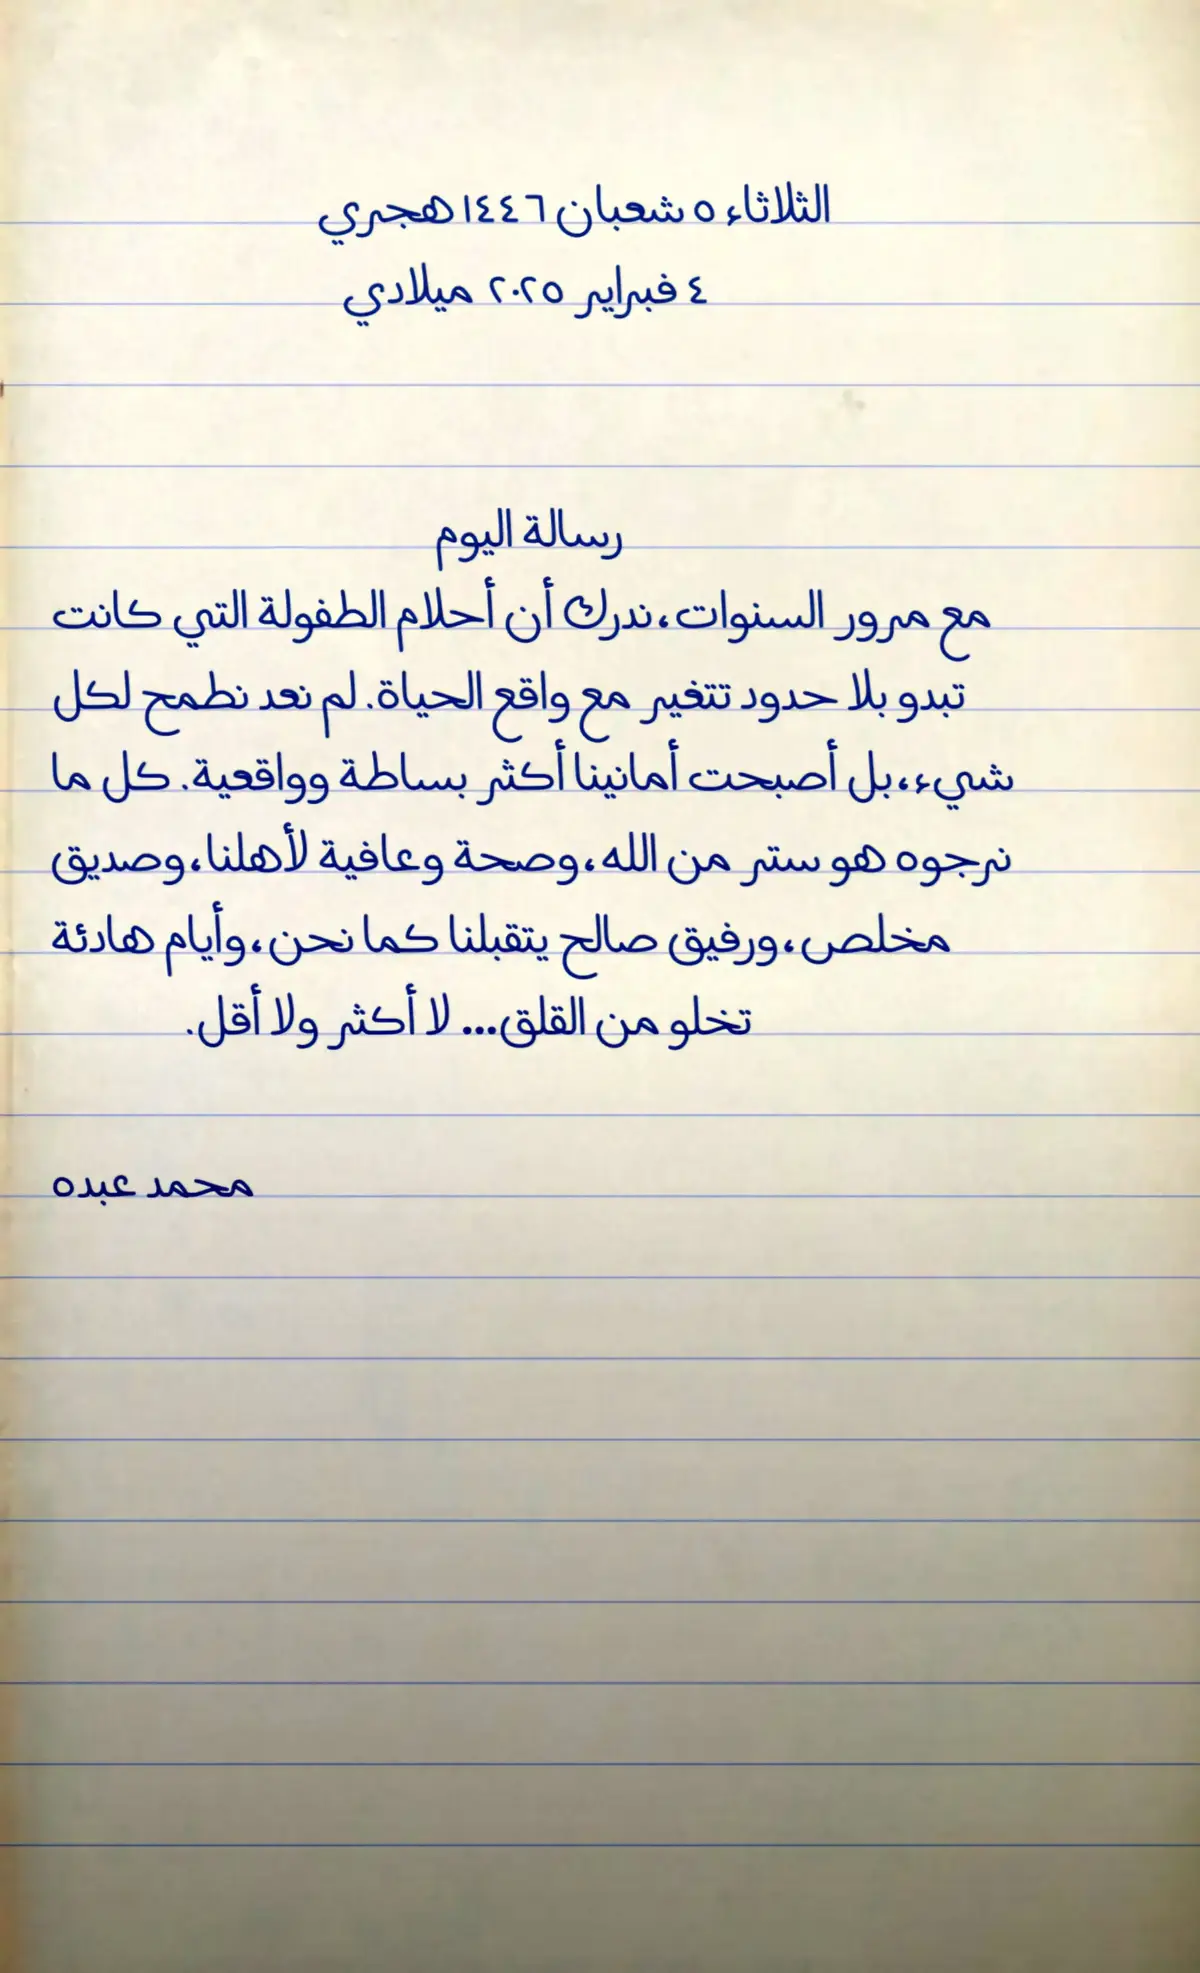 الثلاثاء ٥ شعبان ١٤٤٦ هجري
٤ فبراير ٢٠٢٥ ميلادي
رسالة اليوم
مع مرور السنوات، ندرك أن أحلام الطفولة التي كانت
تبدو بلا حدود تتغير مع واقع الحياة. لم نعد نطمح لكل
شيء، بل أصبحت أمانينا أكثر بساطة وواقعية. كل ما
نرجوه هو ستر من الله، وصحة وعافية لأهلنا، وصديق
مخلص، ورفيق صالح يتقبلنا كما نحن، وأيام هادئة
تخلو من القلق... لا أكثر ولا أقل.
محمد عبده